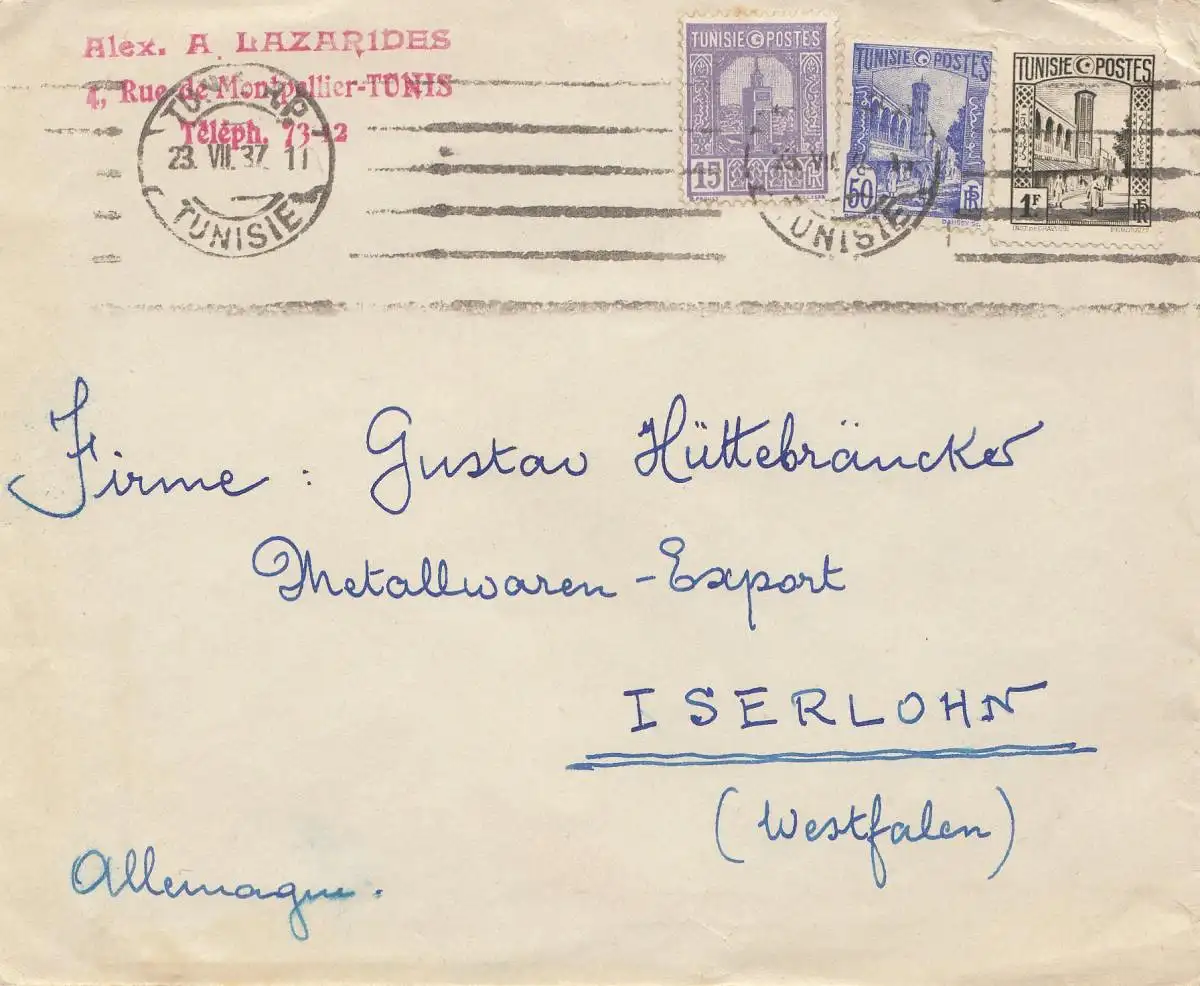 Alex. A. LAZARIDES
4, Rue de Montpellier-TUNIS
Téléph. 73-12
TUNIS R.P.
23. VII. 37. 11
TUNISIE
TUNISIE POSTES
15
TUNISIE POSTES
50
RF
TUNISIE POSTES
1F
RF
TUNISIE
Firme : Gustav Hüttebräucker
Metallwaren-Export
ISERLOHN
(Westfalen)
Allemagne.